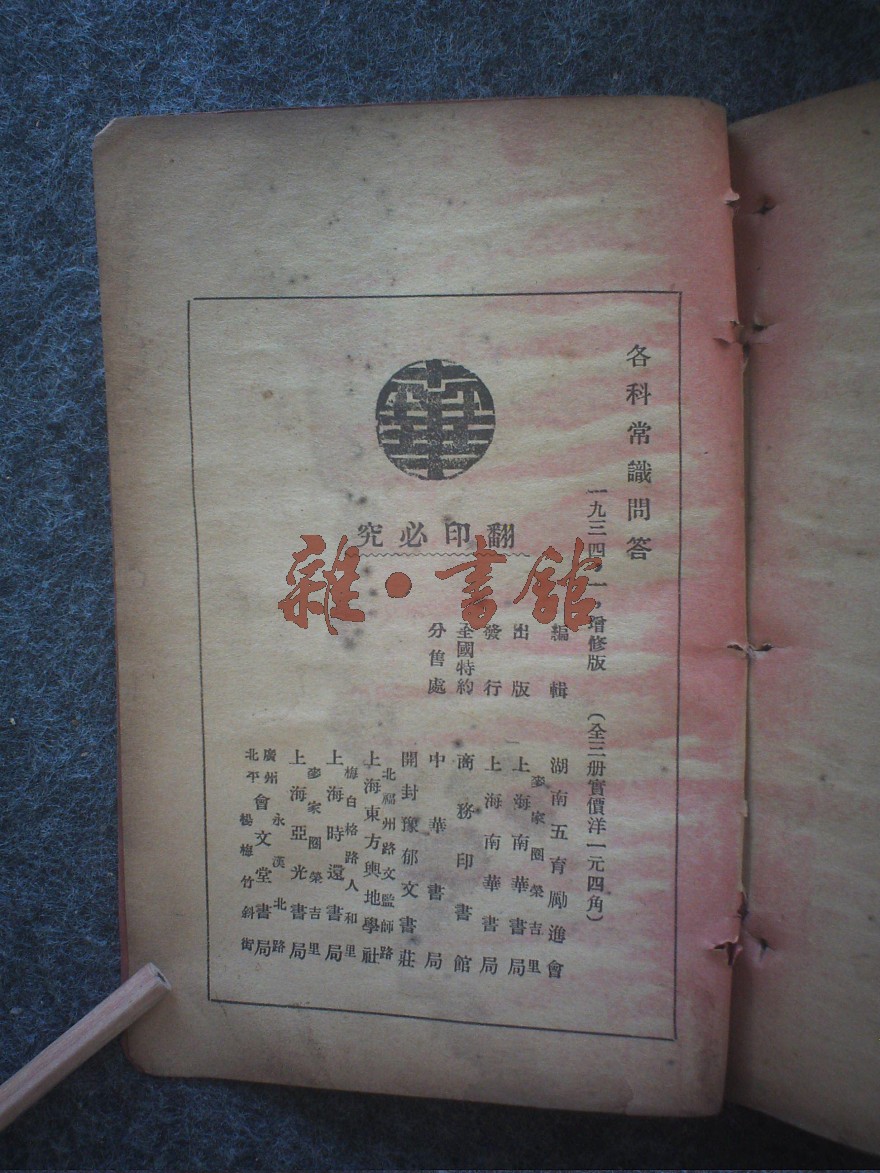 各科常識問答
一九三四，一，增修版　（全三册實價洋一元四角）
華
翻印必究
雜·書舘
編輯　湖南五育勵進會
麥家圈榮吉里
出版　上海南華書局
發行　上海南華書局
全國特約
分售處
商務印書館
中華書局
開封豫郁文書莊
北福州路文監師路
上海東方輿地學社
梅白格路人和里
上海時還書局
麥家圈榮吉里
上海亞光書局
廣州永漢北路
會文堂書局
北平楊梅竹斜街